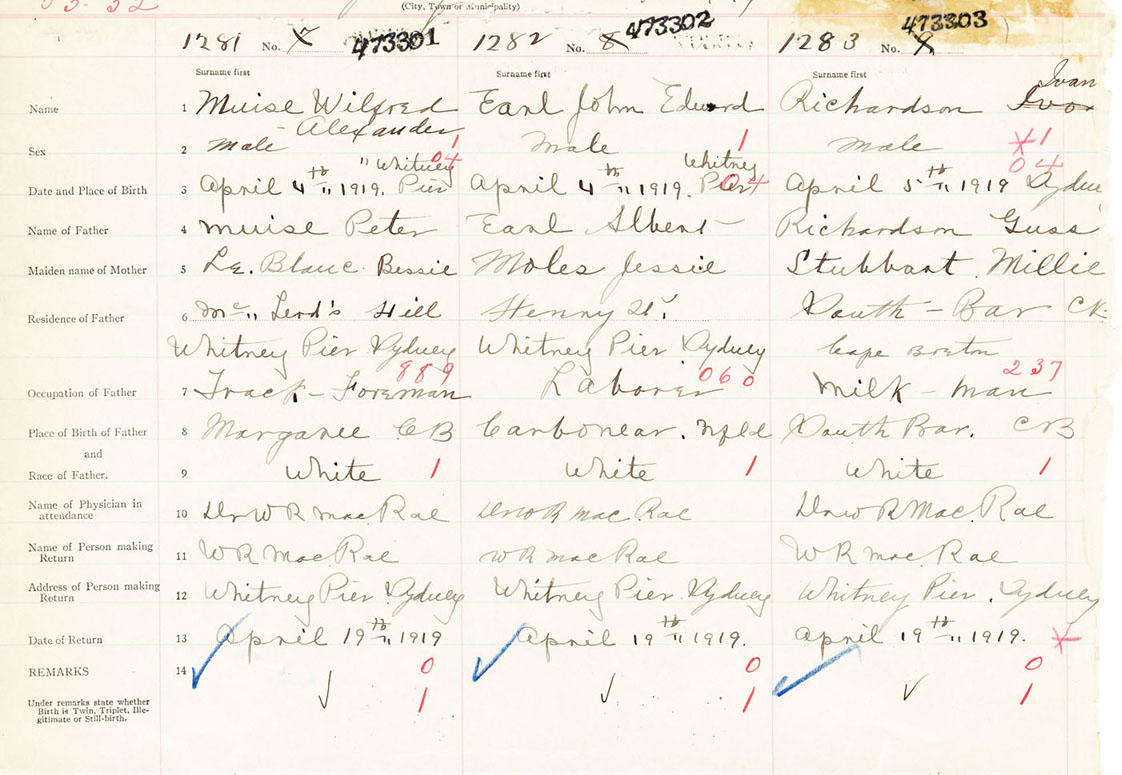 (City, Town or Municipality)
1281 No. 7 473301 1282 No. 8 473302 1283 No. 473303
Surname first Surname first Surname first
Ivan
Name 1 Muise Wilfred Earl John Edward Richardson Ivor
Alexander
Sex 2 Male 1 Male 1 Male 1
" Whitney 04 Whitney 04
Date and Place of Birth 3 April 4th " 1919. Pier April 4th " 1919. Pier 04 April 5th " 1919 Sydney
Name of Father 4 Muise Peter Earl Albert Richardson Guss
Maiden name of Mother 5 Le. Blanc Bessie Moles Jessie Stubbart Millie
Residence of Father 6 Mc " Leod's Hill Henry St, South - Bar
Whitney Pier Sydney Whitney Pier Sydney Cape Breton
889 060 237
Occupation of Father 7 Track - Foreman Laborer Milk - man
Place of Birth of Father 8 Margaree CB Carbonear. Nfld South Bar. CB
and
Race of Father. 9 White 1 White 1 White 1
Name of Physician in attendance 10 Dr W R MacRae Dr W R MacRae Dr W R MacRae
Name of Person making Return 11 W R MacRae W R MacRae W R MacRae
Address of Person making Return 12 Whitney Pier Sydney Whitney Pier Sydney Whitney Pier. Sydney
Date of Return 13 April 19th " 1919 April 19th " 1919. April 19th " 1919.
REMARKS 14 0 0 0
Under remarks state whether Birth is Twin, Triplet, Illegitimate or Still-birth. 1 1 1